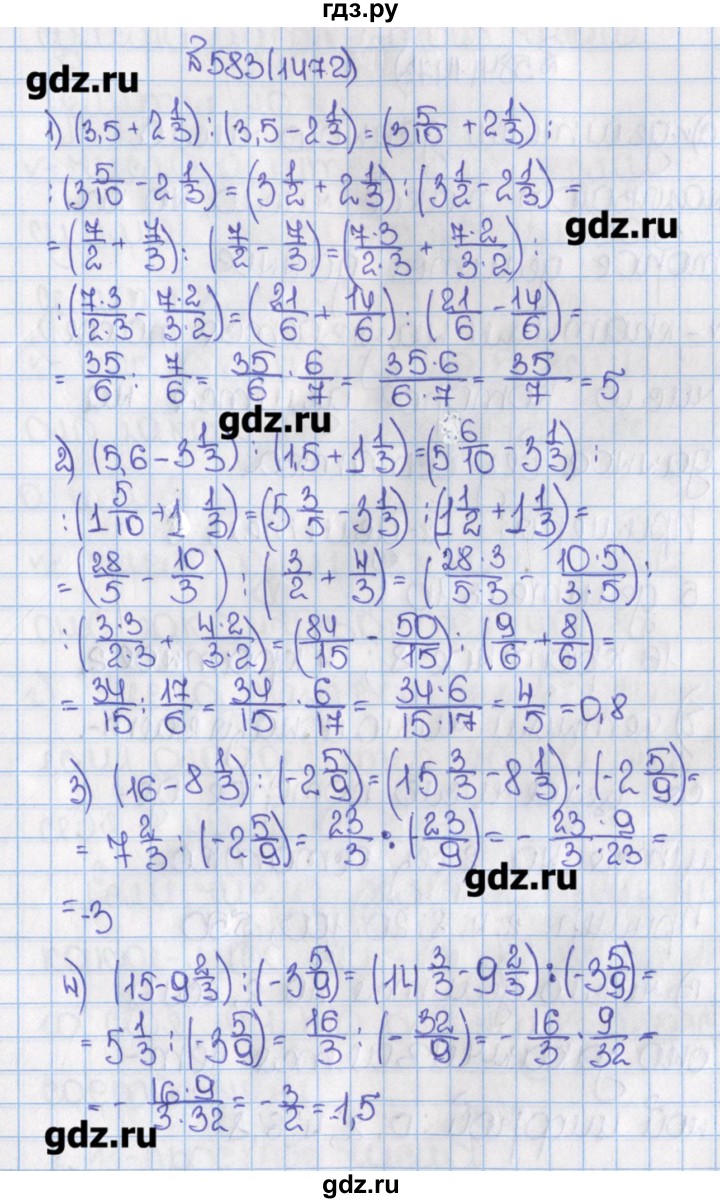 гдз.ру
№583(1472)
gdz.ru
1) (3,5 + 2 1/3) : (3,5 - 2 1/3) = (3 5/10 + 2 1/3) :
: (3 5/10 - 2 1/3) = (3 1/2 + 2 1/3) : (3 1/2 - 2 1/3) =
gdz.ru
= (7/2 + 7/3) : (7/2 - 7/3) = (7·3/2·3 + 7·2/3·2) :
: (7·3/2·3 - 7·2/3·2) = (21/6 + 14/6) : (21/6 - 14/6) =
= 35/6 : 7/6 = 35/6 · 6/7 = 35·6/6·7 = 35/7 = 5
gdz.ru
2) (5,6 - 3 1/3) : (1,5 + 1 1/3) = (5 6/10 - 3 1/3) :
: (1 5/10 + 1 1/3) = (5 3/5 - 3 1/3) : (1 1/2 + 1 1/3) =
= (28/5 - 10/3) : (3/2 + 4/3) = (28·3/5·3 - 10·5/3·5) :
: (3·3/2·3 + 4·2/3·2) = (84/15 - 50/15) : (9/6 + 8/6) =
= 34/15 : 17/6 = 34/15 · 6/17 = 34·6/15·17 = 4/5 = 0,8
3) (16 - 8 1/3) : (-2 5/9) = (15 3/3 - 8 1/3) : (-2 5/9) =
= 7 2/3 : (-2 5/9) = 23/3 : (-23/9) = - 23·9/3·23 =
gdz.ru
= -3
4) (15 - 9 2/3) : (-3 5/9) = (14 3/3 - 9 2/3) : (-3 5/9) =
= 5 1/3 : (-3 5/9) = 16/3 : (- 32/9) = - 16/3 · 9/32 =
= - 16·9/3·32 = - 3/2 = -1,5
gdz.ru
gdz.ru